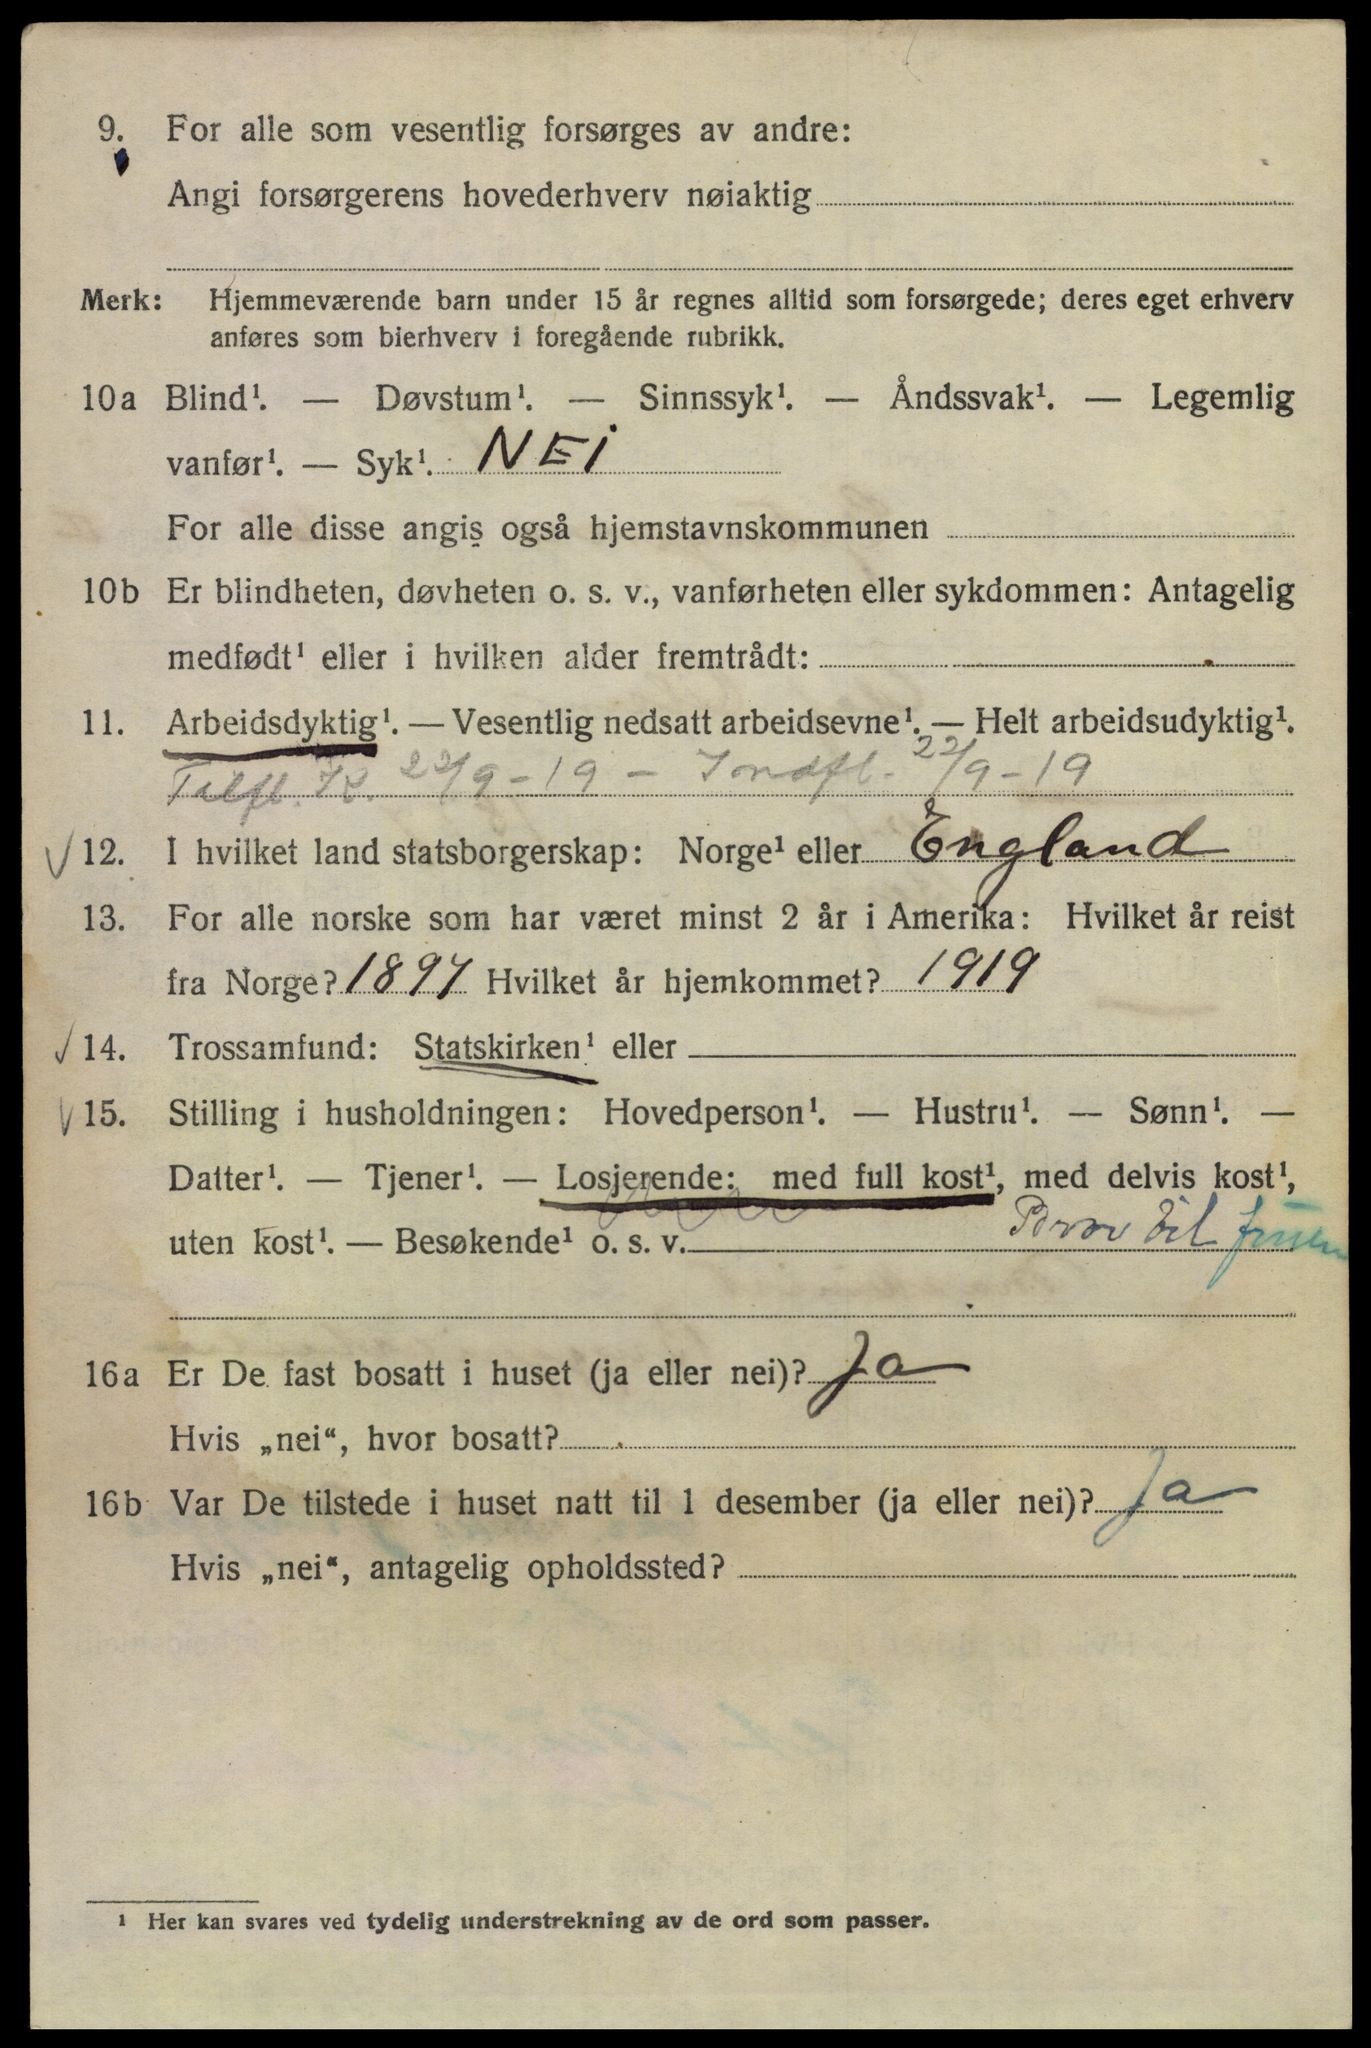 9. For alle som vesentlig forsørges av andre:
Angi forsørgerens hovederhverv nøiaktig
Merk: Hjemmeværende barn under 15 år regnes alltid som forsørgede; deres eget erhverv
anføres som bierhverv i foregående rubrikk.
10a Blind¹. — Døvstum¹. — Sinnssyk¹. — Åndssvak¹. — Legemlig
vanfør¹. — Syk¹. NEi
For alle disse angis også hjemstavnskommunen
10b Er blindheten, døvheten o. s. v., vanførheten eller sykdommen: Antagelig
medfødt¹ eller i hvilken alder fremtrådt:
11. Arbeidsdyktig¹. — Vesentlig nedsatt arbeidsevne¹. — Helt arbeidsudyktig¹.
Tilfl. K. 22/9-19 - Inndfl. 22/9-19
12. I hvilket land statsborgerskap: Norge¹ eller England
13. For alle norske som har været minst 2 år i Amerika: Hvilket år reist
fra Norge? 1897 Hvilket år hjemkommet? 1919
14. Trossamfund: Statskirken¹ eller
15. Stilling i husholdningen: Hovedperson¹. — Hustru¹. — Sønn¹. —
Datter¹. — Tjener¹. — Losjerende: med full kost¹, med delvis kost¹,
uten kost¹. — Besøkende¹ o. s. v. Bror til fruen
16a Er De fast bosatt i huset (ja eller nei)? Ja
Hvis „nei“, hvor bosatt?
16b Var De tilstede i huset natt til 1 desember (ja eller nei)? Ja
Hvis „nei“, antagelig opholdssted?
¹ Her kan svares ved tydelig understrekning av de ord som passer.